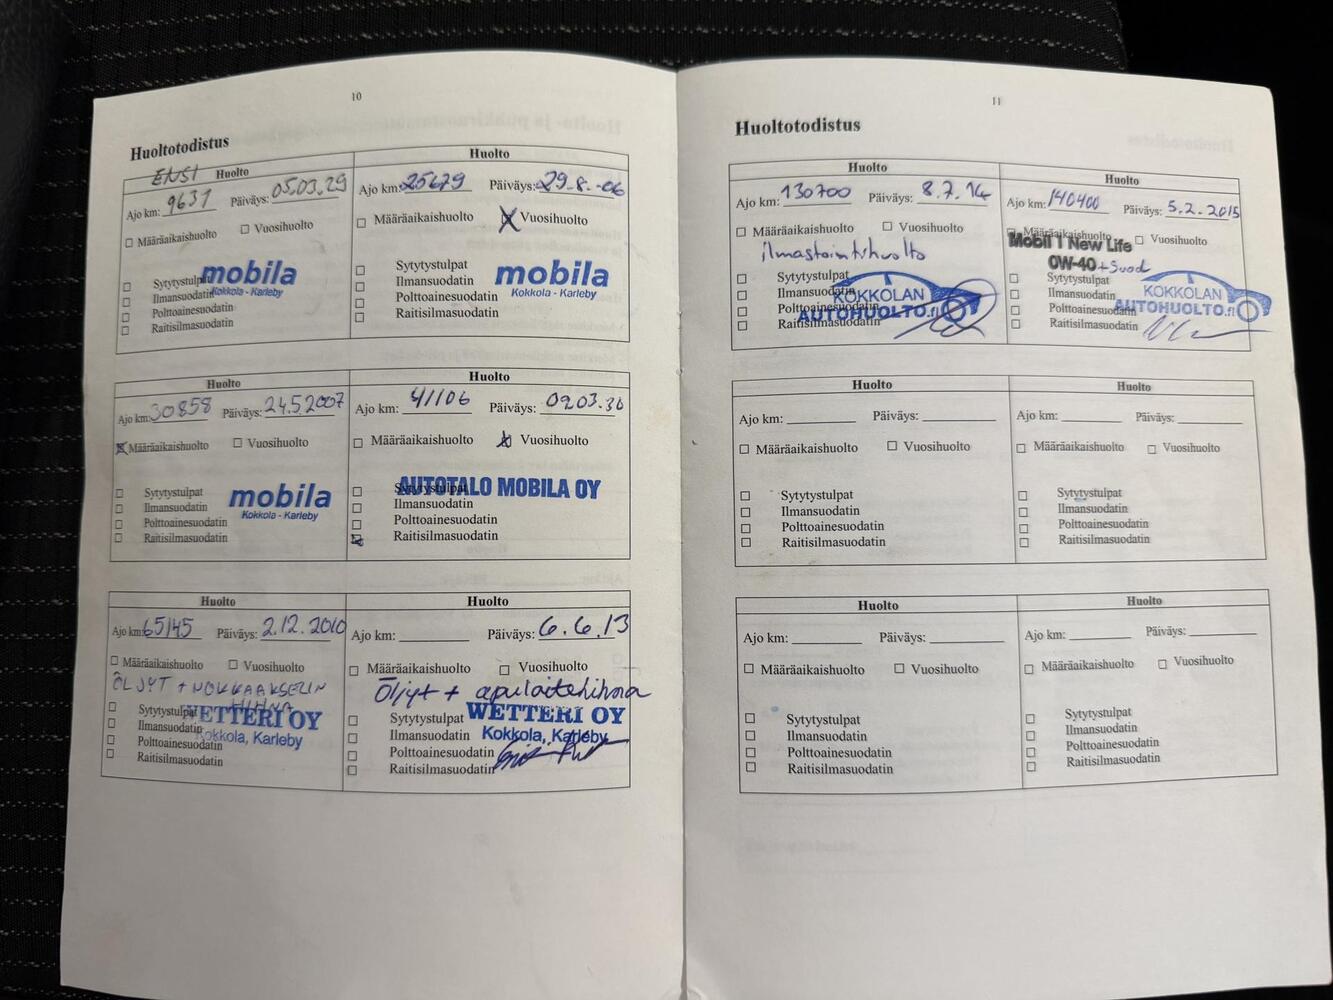 10
Huoltotodistus
ENSI Huolto
Ajo km: 9631 Päiväys: 05.03.29
Määräaikaishuolto Vuosihuolto
Sytytystulpat
Ilmansuodatin
Polttoainesuodatin
Raitisilmasuodatin
mobila
Kokkola - Karleby
Huolto
Ajo km: 25679 Päiväys: 29.8.-06
Määräaikaishuolto X Vuosihuolto
Sytytystulpat
Ilmansuodatin
Polttoainesuodatin
Raitisilmasuodatin
mobila
Kokkola - Karleby
Huolto
Ajo km: 30858 Päiväys: 24.5.2007
X Määräaikaishuolto Vuosihuolto
Sytytystulpat
Ilmansuodatin
Polttoainesuodatin
Raitisilmasuodatin
mobila
Kokkola - Karleby
Huolto
Ajo km: 41106 Päiväys: 0903.30
Määräaikaishuolto X Vuosihuolto
AUTOTALO MOBILA OY
Sytytystulpat
Ilmansuodatin
Polttoainesuodatin
Raitisilmasuodatin
Huolto
Ajo km: 65145 Päiväys: 2.12.2010
Määräaikaishuolto Vuosihuolto
ÖLJYT + NOKKAAKSELIN
HIHNA
Sytytystulpat
Ilmansuodatin
Polttoainesuodatin
Raitisilmasuodatin
WETTERI OY
Kokkola, Karleby
Huolto
Ajo km: Päiväys: 6.6.13
Määräaikaishuolto Vuosihuolto
Öljyt + apulaitehihna
Sytytystulpat
Ilmansuodatin
Polttoainesuodatin
Raitisilmasuodatin
WETTERI OY
Kokkola, Karleby
11
Huoltotodistus
Huolto
Ajo km: 130700 Päiväys: 8.7.14
Määräaikaishuolto Vuosihuolto
ilmastointihuolto
Sytytystulpat
Ilmansuodatin
Polttoainesuodatin
Raitisilmasuodatin
KOKKOLAN
AUTOHUOLTO.fi
Huolto
Ajo km: 140400 Päiväys: 5.2.2015
Määräaikaishuolto Vuosihuolto
Mobil 1 New Life
0W-40 + Suod
Sytytystulpat
Ilmansuodatin
Polttoainesuodatin
Raitisilmasuodatin
KOKKOLAN
AUTOHUOLTO.fi
Huolto
Ajo km: Päiväys:
Määräaikaishuolto Vuosihuolto
Sytytystulpat
Ilmansuodatin
Polttoainesuodatin
Raitisilmasuodatin
Huolto
Ajo km: Päiväys:
Määräaikaishuolto Vuosihuolto
Sytytystulpat
Ilmansuodatin
Polttoainesuodatin
Raitisilmasuodatin
Huolto
Ajo km: Päiväys:
Määräaikaishuolto Vuosihuolto
Sytytystulpat
Ilmansuodatin
Polttoainesuodatin
Raitisilmasuodatin
Huolto
Ajo km: Päiväys:
Määräaikaishuolto Vuosihuolto
Sytytystulpat
Ilmansuodatin
Polttoainesuodatin
Raitisilmasuodatin